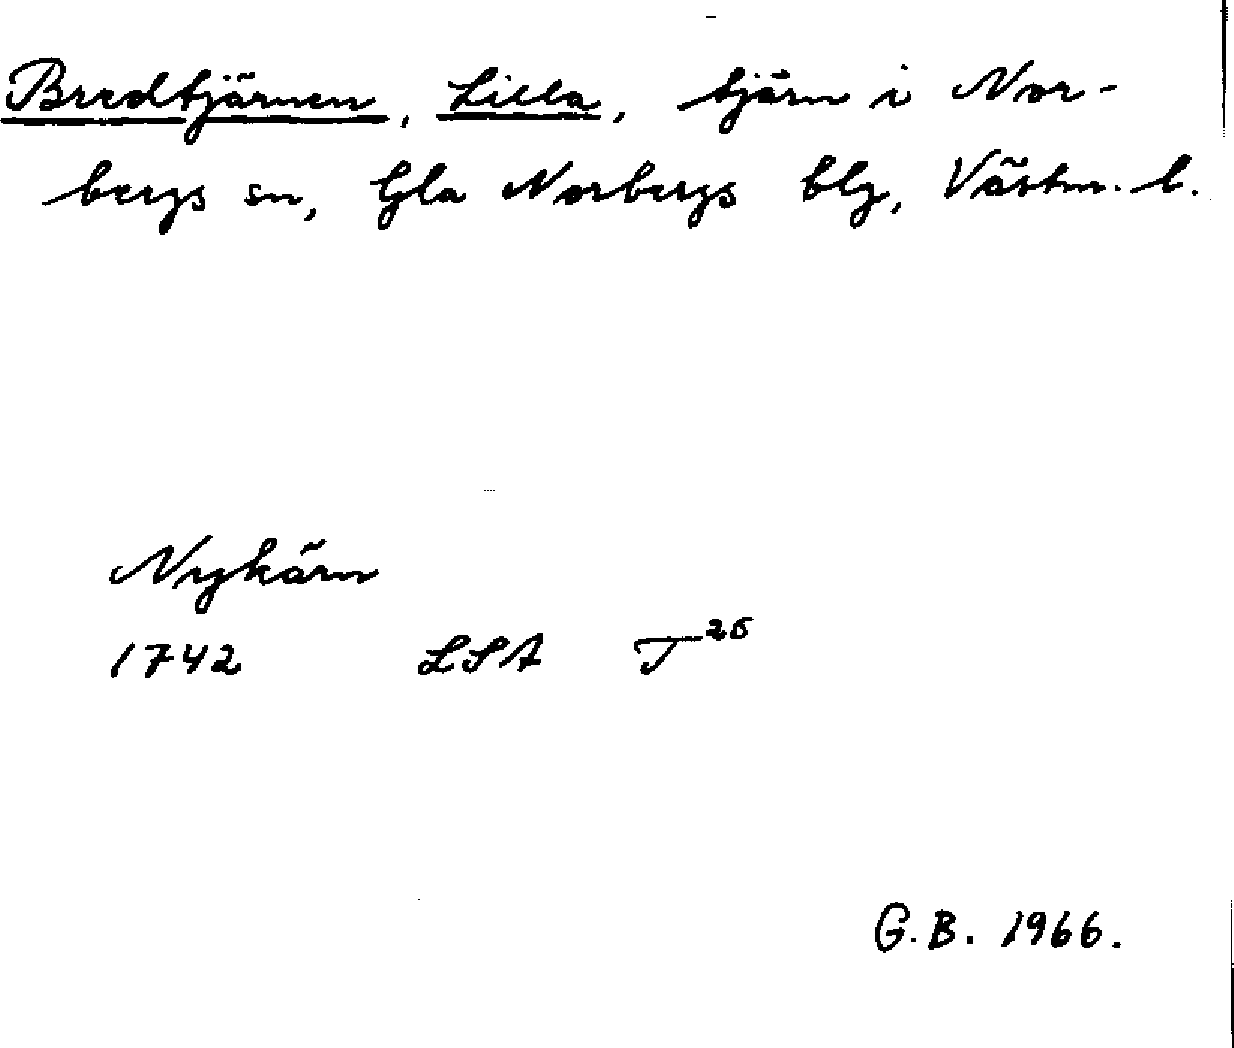 Bredtjärnen, Lilla, tjärn i Nor-
bergs sn, Gla Norbergs blg, Västm. l.
Nykärn
1742 LSA T²⁵
G.B. 1966.